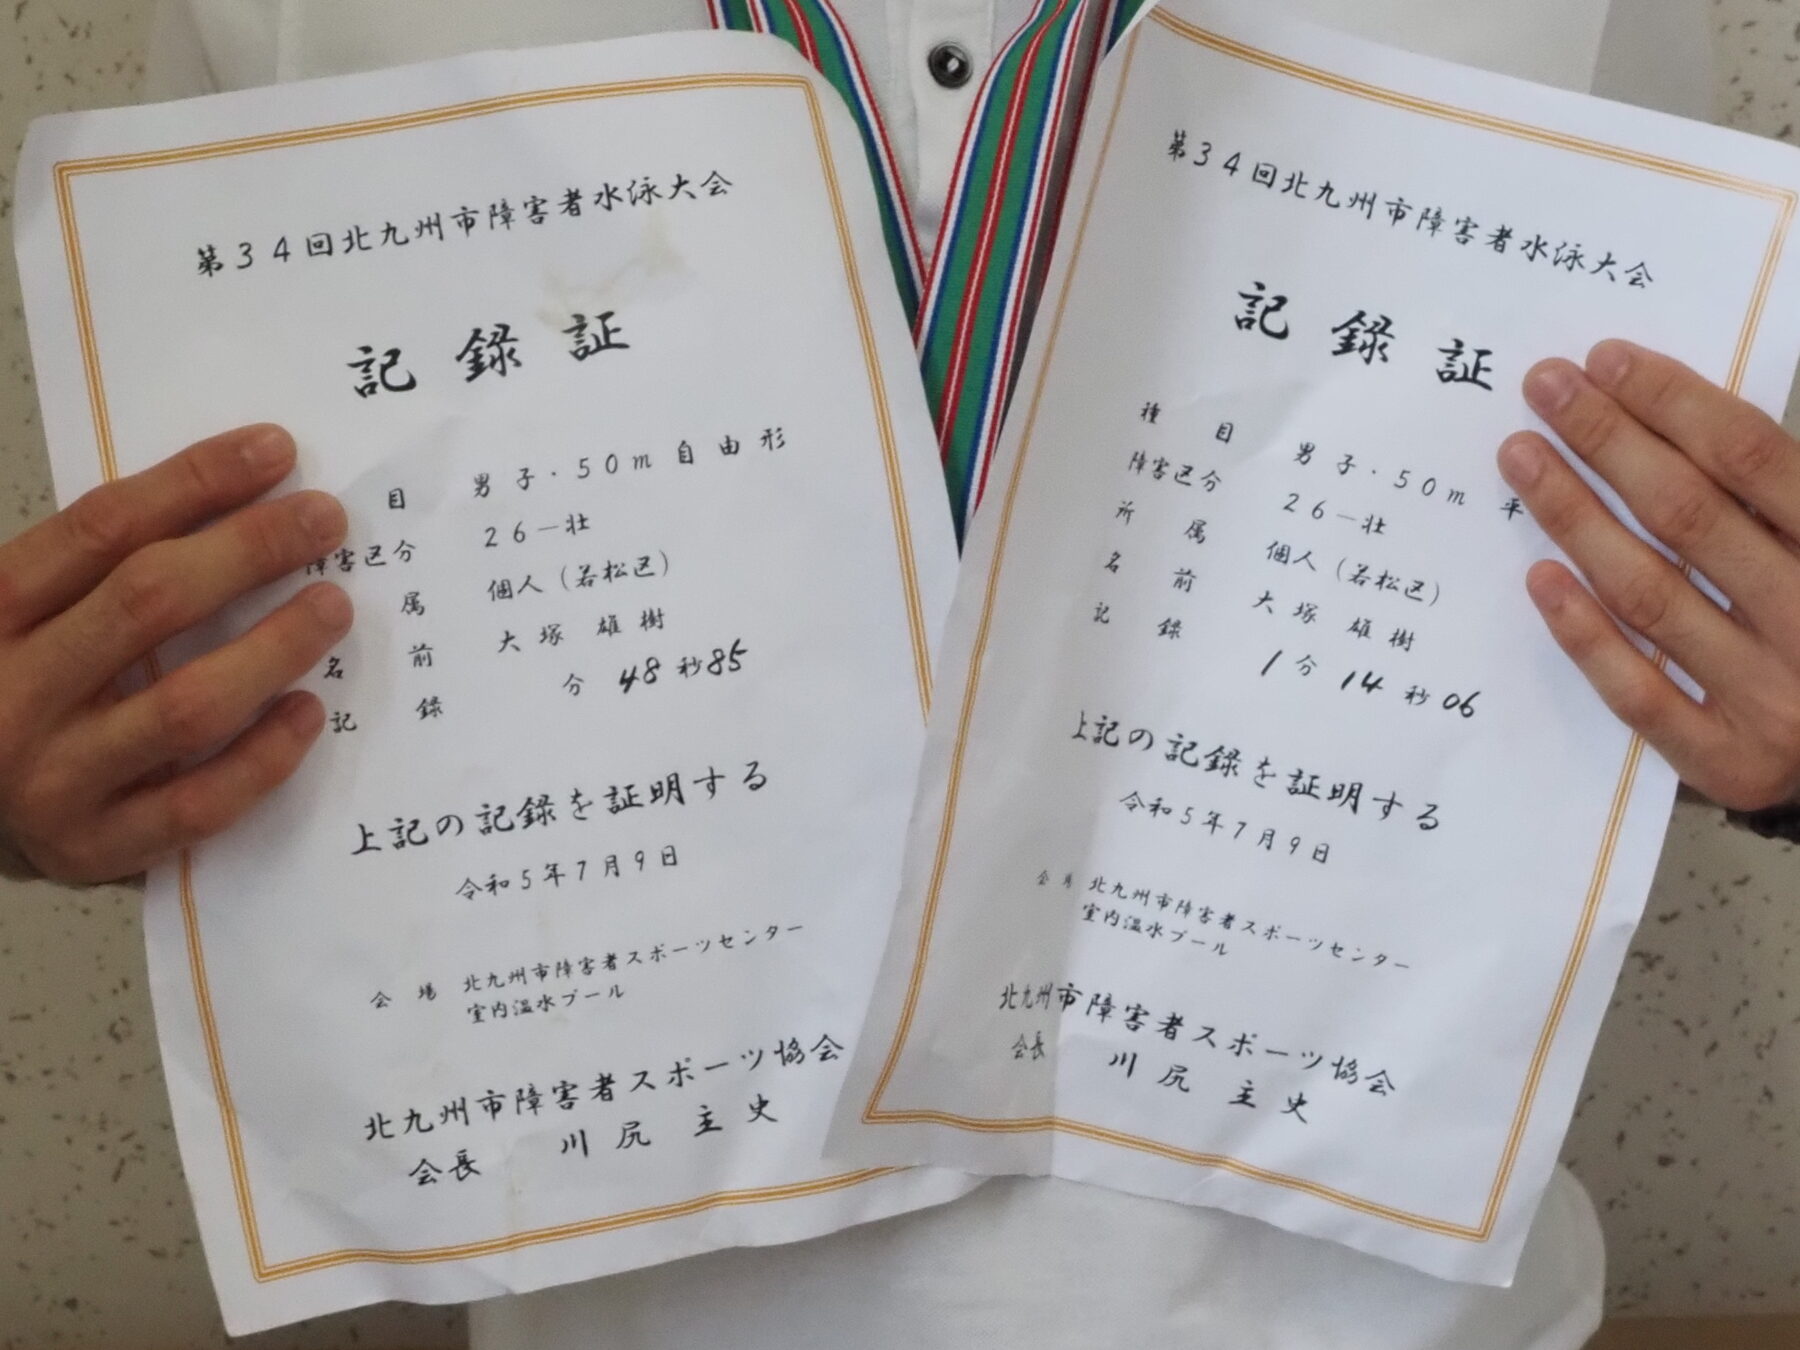 第34回北九州市障害者水泳大会
記録証
目 男子・50m自由形
障害区分 26－壮
属 個人(若松区)
名前 大塚 雄樹
記録 分48秒85
上記の記録を証明する
令和5年7月9日
会場 北九州市障害者スポーツセンター
室内温水プール
北九州市障害者スポーツ協会
会長 川尻 主史
第34回北九州市障害者水泳大会
記録証
種目 男子・50m 平
障害区分 26－壮
所属 個人(若松区)
名前 大塚 雄樹
記録 1分14秒06
上記の記録を証明する
令和5年7月9日
会場 北九州市障害者スポーツセンター
室内温水プール
北九州市障害者スポーツ協会
会長 川尻 主史